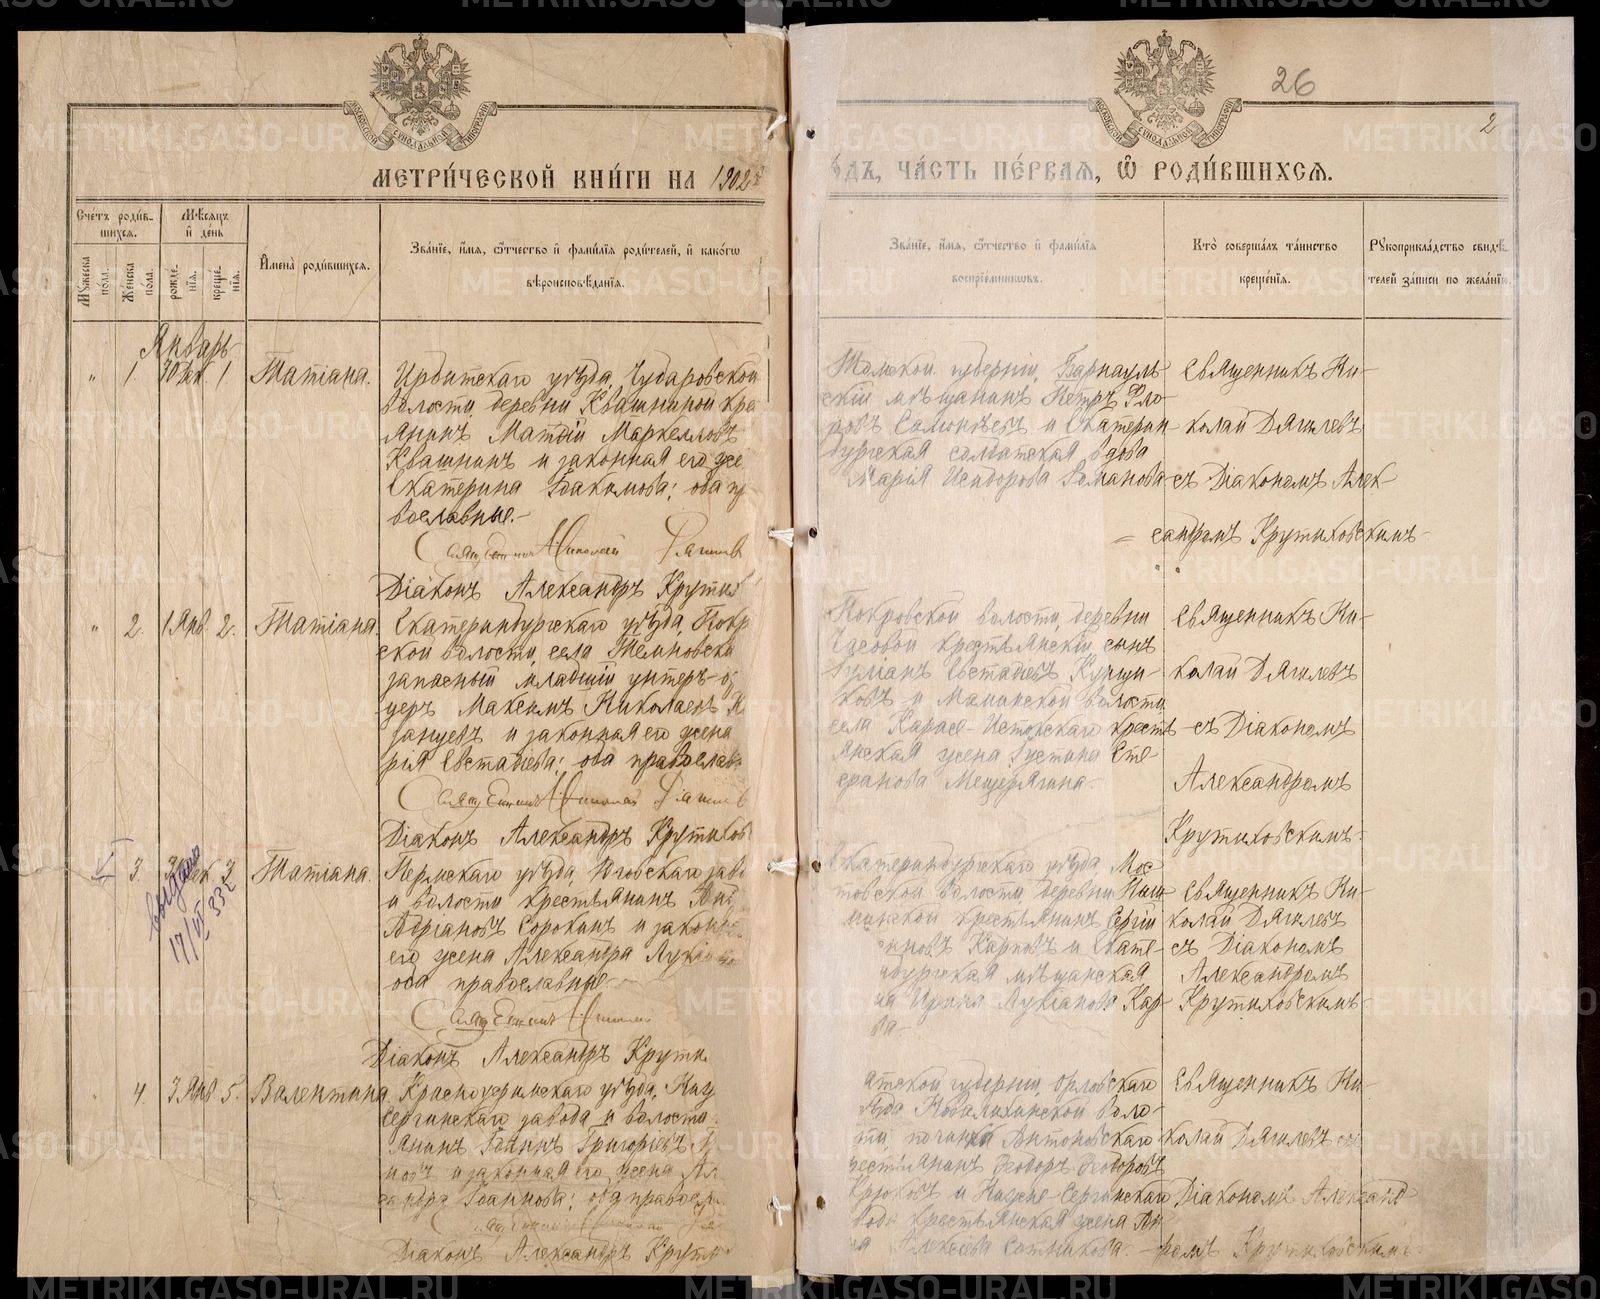 26
2
МЕТРИ́ЧЕСКОЙ КНИ́ГИ НА 1902
ЧА́СТЬ ПЕ́РВАЯ, Ѽ РОДИ́ВШИХСЯ.
Сче́тъ роди́в-
шихся.
Мѣ́сяцъ
и҆ де́нь
Му́жеска
по́ла.
Же́нска
по́ла.
рожде́-
нїя.
креще́-
нїя.
И҆мена̀ роди́вшихся.
Зва́нїе, и҆́мя, ѻ҆́тчество и҆ фами́лїя роди́телей, и҆ како́гѡ
вѣроисповѣ́данїя.
Зва́нїе, и҆́мя, ѻ҆́тчество и҆ фами́лїя
воспрїе́мникѡвъ.
Кто̀ соверша́лъ та́инство
креще́нїя.
Рꙋкоприкла́дство свидѣ́-
телей за́писи по жела́нїю.
Январь
" 1 30 Дек. 1 Татіана.
Ирбитскаго уѣзда, Чубаровской
волости, деревни Квашниной кре
янинъ Матѳій Маркелловъ
Квашнинъ и законная его же
Екатерина Іоакимова; оба пр
вославные.
Священникъ Николай
Діаконъ Александръ Крутих
Томской губерніи, Барнауль
скій мѣщанинъ Петръ Фло
ровъ и Екатерин
бургская солдатская вдова
Марія Исидорова Романова
Священникъ Ни-
колай Дягилевъ
съ Діакономъ Алек
сандромъ Крутиховскимъ
" 2. 1 Янв. 2. Татіана.
Екатеринбургскаго уѣзда, Покр
ской волости, села Темновска
запасный младшій унтеръ-оф
церъ Максимъ Николаевъ К
занцевъ и законная его жена
рія Евстаѳіева; оба православн
Священникъ Николай
Діаконъ Александръ Крутихов
Покровской волости, деревни
крестьянскій сынъ
Іуліанъ Евстаѳіевъ
ковъ и Маминской волости
села Карасье-Истокскаго крестъ
янская жена Іустина Сте-
фанова Мещерягина.
Священникъ Ни-
колай Дягилевъ
съ Діакономъ
Александромъ
Крутиховскимъ.
3 Дек. 3 Татіана.
выдано
17/VI 33 г.
Пермскаго уѣзда, Юговскаго заво
и волости крестьянинъ
Адріановъ Сорокинъ и законн
его жена Александра Лукіа
оба православные.
Священникъ Никола
Діаконъ Александръ Крути
Екатеринбургскаго уѣзда, Мос-
товской волости, деревни
крестьянинъ Сергій
Карповъ и Екате-
бургская мѣщанская
на Ирина Лукіанова Кар-
ва
Священникъ Ни-
колай Дягилевъ
съ Діакономъ
Александромъ
Крутиховскимъ.
" 4. 3 Янв. 5. Валентина.
Красноуфимскаго уѣзда, Ниж
Сергинскаго завода и волости
янинъ Іоаннъ Григорьевъ
новъ и законная его жена Ал
сандра Іоаннова; оба правосл
Діаконъ Александръ Крути
ятской губерніи, Орловскаго
ѣзда воло-
ти, починка Антоновскаго
рестьянинъ Ѳеодоръ Ѳеодоровъ
Крюковъ и Нижне-Сергинскаго
вода крестьянская жена Ан
на Алексіева Сотникова.
Священникъ Ни-
колай Дягилевъ съ
Діакономъ Александ-
ромъ Крутиховскимъ